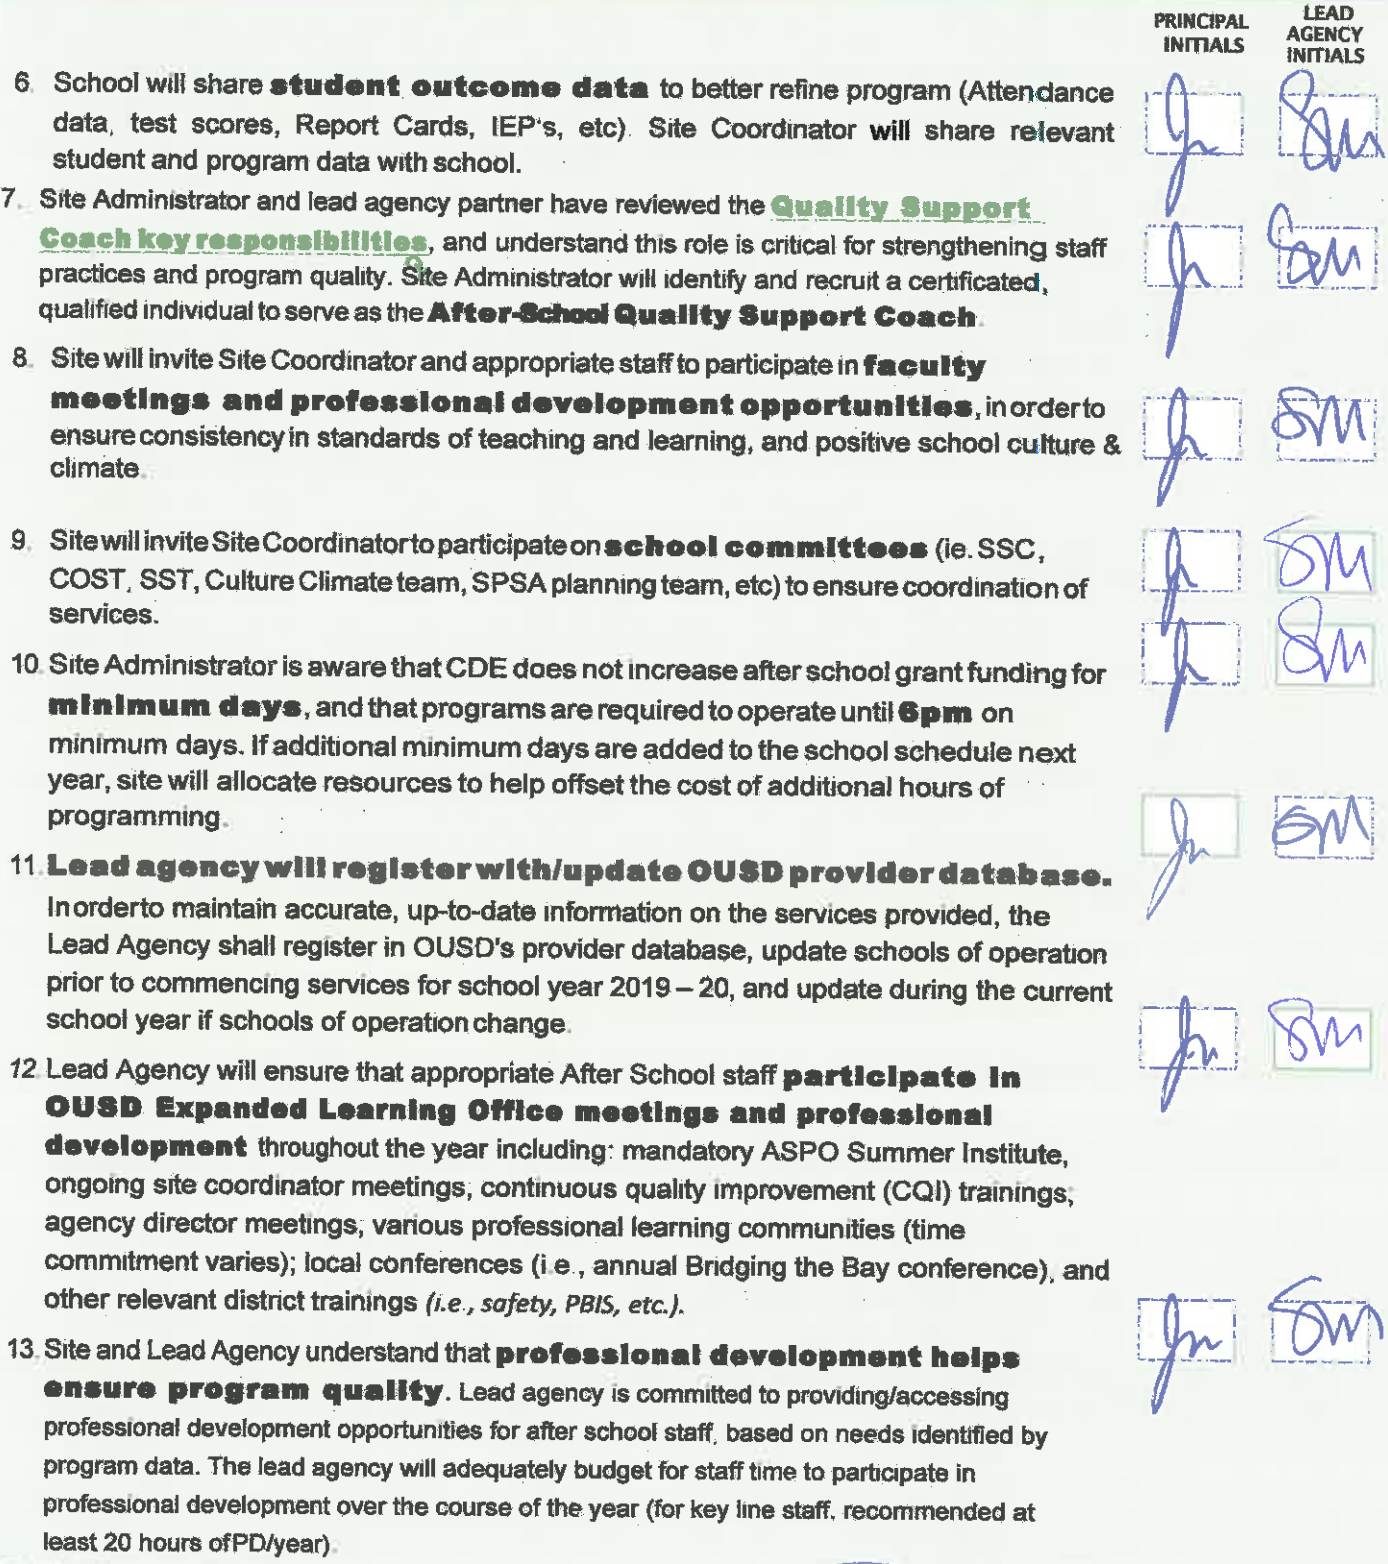 PRINCIPAL INITIALS
LEAD AGENCY INITIALS
6. School will share student outcome data to better refine program (Attendance
data, test scores, Report Cards, IEP's, etc). Site Coordinator will share relevant
student and program data with school.
7. Site Administrator and lead agency partner have reviewed the Quality Support
Coach key responsibilities, and understand this role is critical for strengthening staff
practices and program quality. Site Administrator will identify and recruit a certificated,
qualified individual to serve as the After-School Quality Support Coach.
8. Site will invite Site Coordinator and appropriate staff to participate in faculty
meetings and professional development opportunities, in order to
ensure consistency in standards of teaching and learning, and positive school culture &
climate.
9. Site will invite Site Coordinator to participate on school committees (ie. SSC,
COST, SST, Culture Climate team, SPSA planning team, etc) to ensure coordination of
services.
10. Site Administrator is aware that CDE does not increase after school grant funding for
minimum days, and that programs are required to operate until 6pm on
minimum days. If additional minimum days are added to the school schedule next
year, site will allocate resources to help offset the cost of additional hours of
programming.
11. Lead agency will register with/update OUSD provider database.
In order to maintain accurate, up-to-date information on the services provided, the
Lead Agency shall register in OUSD's provider database, update schools of operation
prior to commencing services for school year 2019 – 20, and update during the current
school year if schools of operation change.
12. Lead Agency will ensure that appropriate After School staff participate in
OUSD Expanded Learning Office meetings and professional
development throughout the year including: mandatory ASPO Summer Institute,
ongoing site coordinator meetings; continuous quality improvement (CQI) trainings;
agency director meetings; various professional learning communities (time
commitment varies); local conferences (i.e., annual Bridging the Bay conference), and
other relevant district trainings (i.e., safety, PBIS, etc.).
13. Site and Lead Agency understand that professional development helps
ensure program quality. Lead agency is committed to providing/accessing
professional development opportunities for after school staff, based on needs identified by
program data. The lead agency will adequately budget for staff time to participate in
professional development over the course of the year (for key line staff, recommended at
least 20 hours of PD/year).